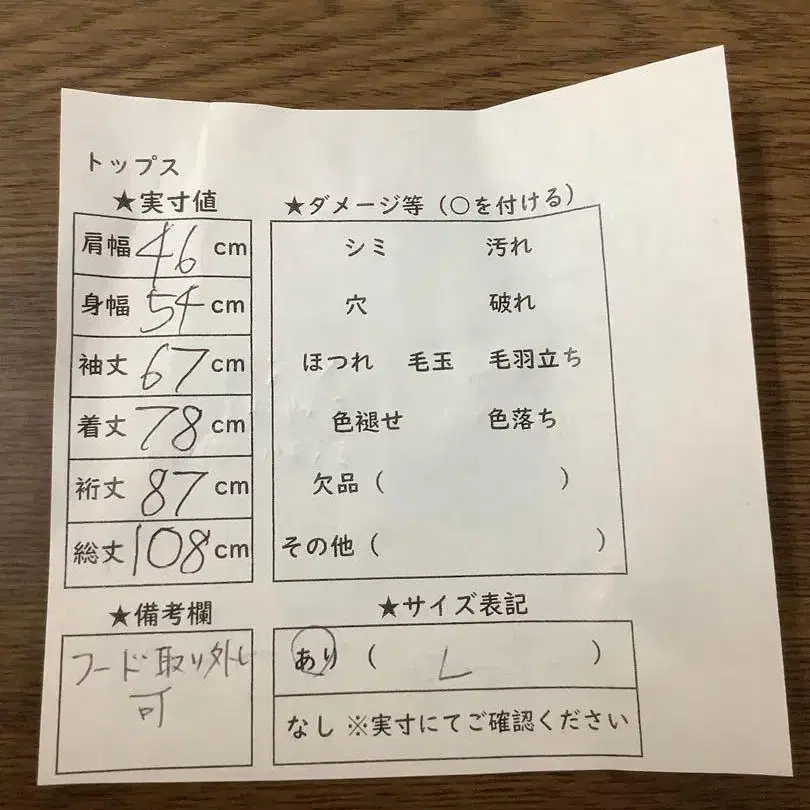 トップス
★実寸値
肩幅 46 cm
身幅 54 cm
袖丈 67 cm
着丈 78 cm
裄丈 87 cm
総丈 108 cm
★ダメージ等（○を付ける）
シミ 汚れ
穴 破れ
ほつれ 毛玉 毛羽立ち
色褪せ 色落ち
欠品（ ）
その他（ ）
★備考欄
フード取り外し
可
★サイズ表記
あり（ L ）
なし ※実寸にてご確認ください